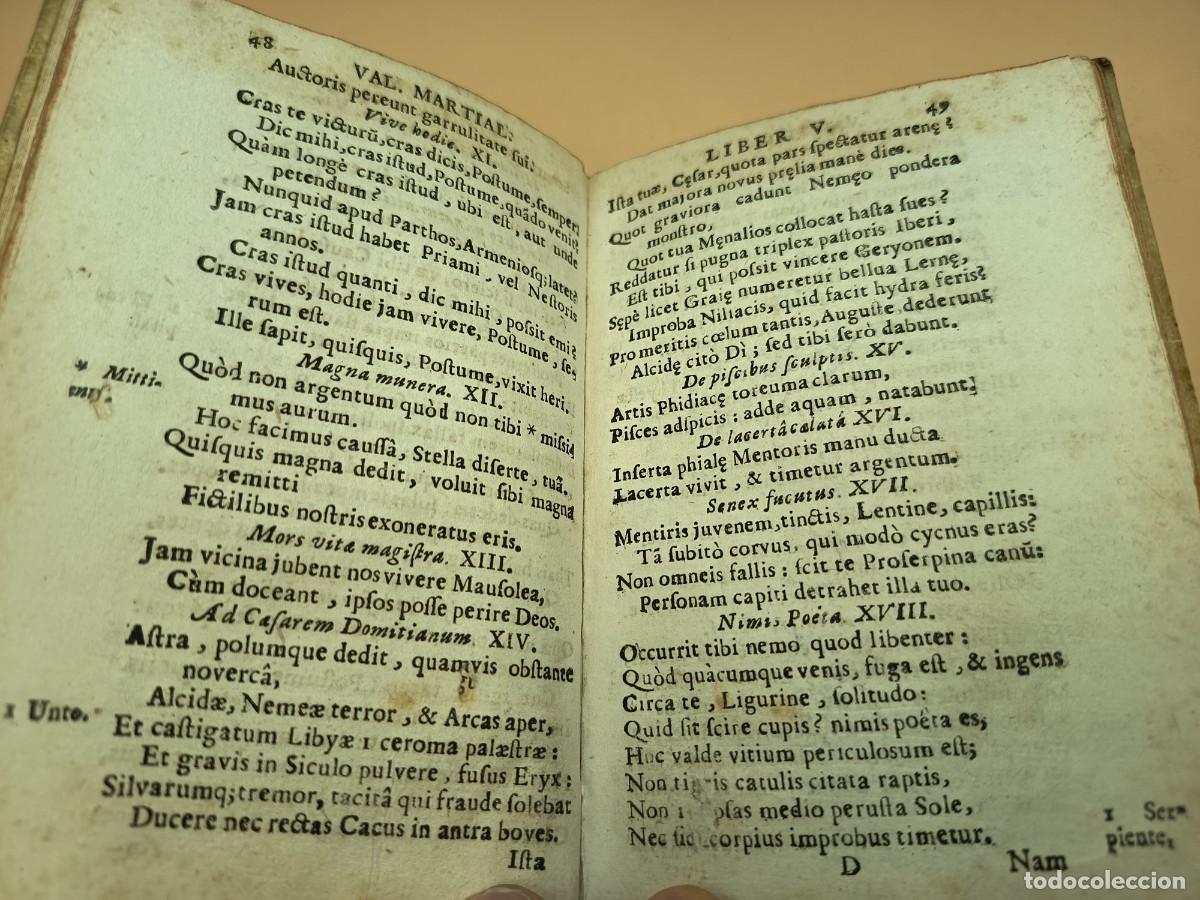 48
VAL. MARTIAL:
Auctoris pereunt garrulitate sui.
Vive hodie. XI.
Cras te victurũ, cras dicis, Postume, semper:
Dic mihi, cras istud, Postume, quãdo venit?
Quàm longè cras istud, ubi est, aut unde
petendum?
Nunquid apud Parthos, Armeniosq; latet?
Jam cras istud habet Priami, vel Nestoris
annos.
Cras istud quanti, dic mihi, possit emi?
Cras vives, hodie jam vivere, Postume, se-
rum est.
Ille sapit, quisquis, Postume, vixit heri.
Magna munera. XII.
* Mitti-
mus.
Quòd non argentum quòd non tibi * missi-
mus aurum.
Hoc facimus caussâ, Stella diserte, tuâ.
Quisquis magna dedit, voluit sibi magna
remitti
Fictilibus nostris exoneratus eris.
Mors vitæ magistra. XIII.
Jam vicina jubent nos vivere Mausolea,
Cùm doceant, ipsos posse perire Deos.
Ad Cæsarem Domitianum. XIV.
Astra, polumque dedit, quamvis obstante
novercâ,
Alcidæ, Nemeæ terror, & Arcas aper,
1 Unto.
Et castigatum Libyæ 1 ceroma palæstræ:
Et gravis in Siculo pulvere, fusus Eryx:
Silvarumq; tremor, tacitâ qui fraude solebat
Ducere nec rectas Cacus in antra boves.
Ista
49
LIBER V.
Ista tuæ, Cęsar, quota pars spectatur arenę?
Dat majora novus pręlia manè dies.
Quot graviora cadunt Nemęo pondera
monstro,
Quot tua Męnalios collocat hasta sues?
Reddatur si pugna triplex pastoris Iberi,
Est tibi, qui possit vincere Geryonem.
Sępè licet Graię numeretur bellua Lernę,
Improba Niliacis, quid facit hydra feris?
Pro meritis cœlum tantis, Auguste, dederunt
Alcidę citò Dì; sed tibi serò dabunt.
De piscibus sculptis. XV.
Artis Phidiacę toreuma clarum,
Pisces adspicis: adde aquam, natabunt.
De lacertâ cælatá XVI.
Inserta phialę Mentoris manu ducta
Lacerta vivit, & timetur argentum.
Senex fucutus. XVII.
Mentiris juvenem, tinctis, Lentine, capillis:
Tã subitò corvus, qui modò cycnus eras?
Non omneis fallis: scit te Proserpina canũ:
Personam capiti detrahet illa tuo.
Nimis Poëta. XVIII.
Occurrit tibi nemo quod libenter:
Quòd quàcumque venis, fuga est, & ingens
Circa te, Ligurine, solitudo:
Quid sit scire cupis? nimis poëta es,
Hoc valde vitium periculosum est;
Non tigris catulis citata raptis,
Non medio perusta Sole,
Nec sic scorpius improbus timetur.
1 Ser-
piente.
D
Nam
todocoleccion